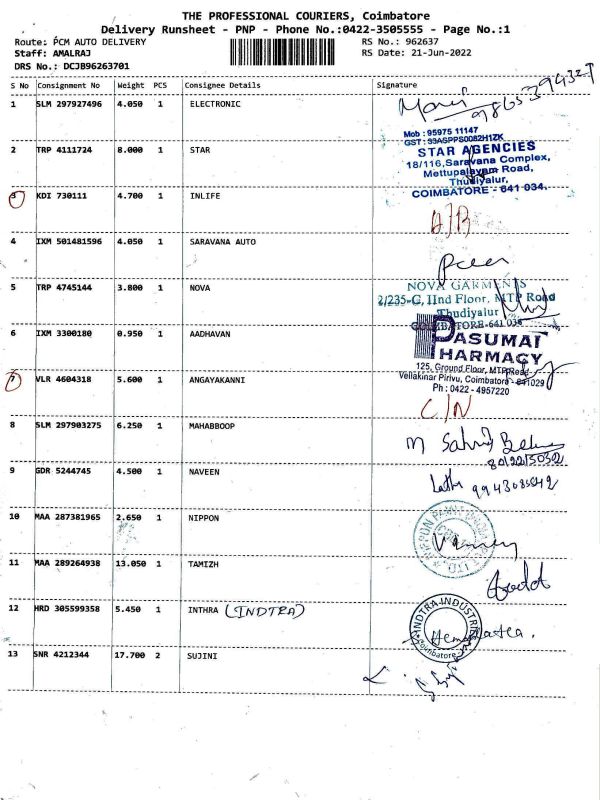 THE PROFESSIONAL COURIERS, Coimbatore
Delivery Runsheet - PNP - Phone No.:0422-3505555 - Page No.:1
Route: PCM AUTO DELIVERY RS No.: 962637
Staff: AMALRAJ RS Date: 21-Jun-2022
DRS No.: DCJB96263701
S No Consignment No Weight PCS Consignee Details Signature
1 SLM 297927496 4.050 1 ELECTRONIC
Mob : 95975 11147
GST : 33ASPPS0082H1ZK
2 TRP 4111724 8.000 1 STAR STAR AGENCIES
18/116,Saravana Complex,
Mettupalayam Road,
Thudiyalur,
COIMBATORE - 641 034.
3 KDI 730111 4.700 1 INLIFE
4 IXM 501481596 4.050 1 SARAVANA AUTO
5 TRP 4745144 3.800 1 NOVA NOVA GARMENTS
2/235-C, IInd Floor, MTP Road
Thudiyalur
COIMBATORE-641 034
6 IXM 3300180 0.950 1 AADHAVAN PASUMAI
PHARMACY
125, Ground Floor, MTP Road
Vellakinar Pirivu, Coimbatore - 641029
Ph : 0422 - 4957220
7 VLR 4604318 5.600 1 ANGAYAKANNI
C/N
8 SLM 297903275 6.250 1 MAHABBOOP
9 GDR 5244745 4.500 1 NAVEEN Latha
10 MAA 287381965 2.650 1 NIPPON NIPPON PAINT
11 MAA 289264938 13.050 1 TAMIZH
12 HRD 305599358 5.450 1 INTHRA (INDTRA) INDTRA INDUSTRIES
Coimbatore
13 SNR 4212344 17.700 2 SUJINI